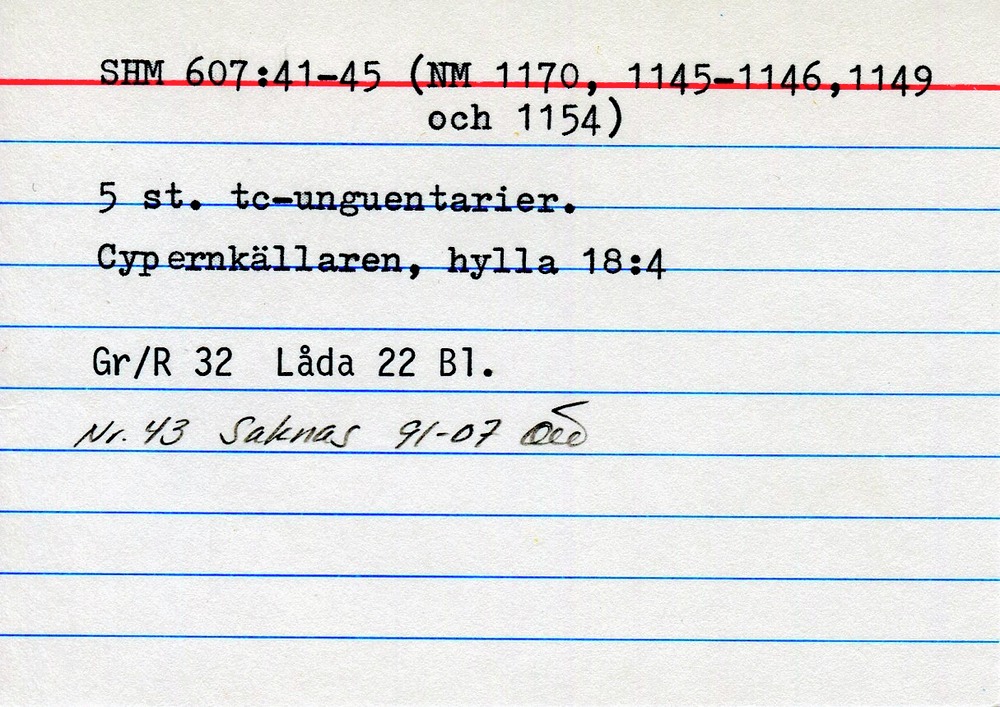 SHM 607:41-45 (NM 1170, 1145-1146,1149
och 1154)
5 st. tc-unguentarier.
Cypernkällaren, hylla 18:4
Gr/R 32 Låda 22 Bl.
Nr. 43 Saknas 91-07